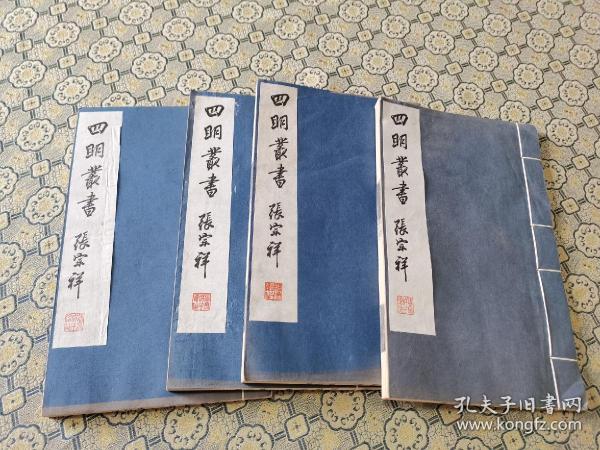 四明叢書 張宗祥
四明叢書 張宗祥
四明叢書 張宗祥
四明叢書 張宗祥
孔夫子旧書网
www.kongfz.com